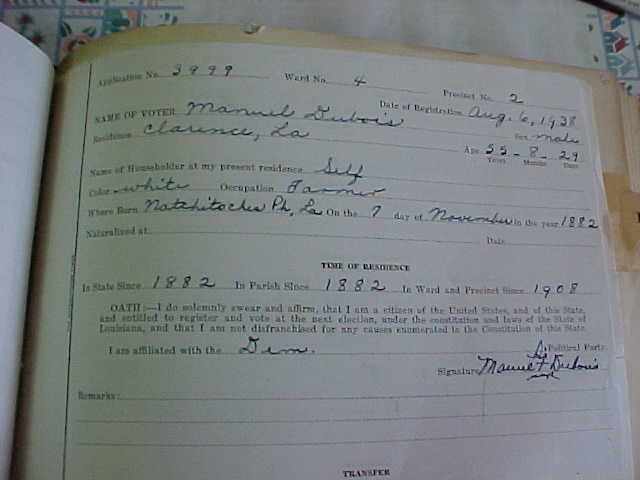 Application No. 3999 Ward No. 4 Precinct No. 2
NAME OF VOTER Manuel Dubois Date of Registration Aug. 6, 1938
Residence Clarence, La Sex male
Age 55-8-29
Years Months Days
Name of Householder at my present residence Self
Color white Occupation Farmer
Where Born Natchitoches Ph, La On the 7 day of November in the year 1882
Naturalized at Date
TIME OF RESIDENCE
In State Since 1882 In Parish Since 1882 In Ward and Precinct Since 1908
OATH:—I do solemnly swear and affirm, that I am a citizen of the United States, and of this State,
and entitled to register and vote at the next election, under the constitution and laws of the State of
Louisiana, and that I am not disfranchised for any causes enumerated in the Constitution of this State.
I am affiliated with the Dem. Political Party.
Signature Dubois
Remarks:
TRANSFER